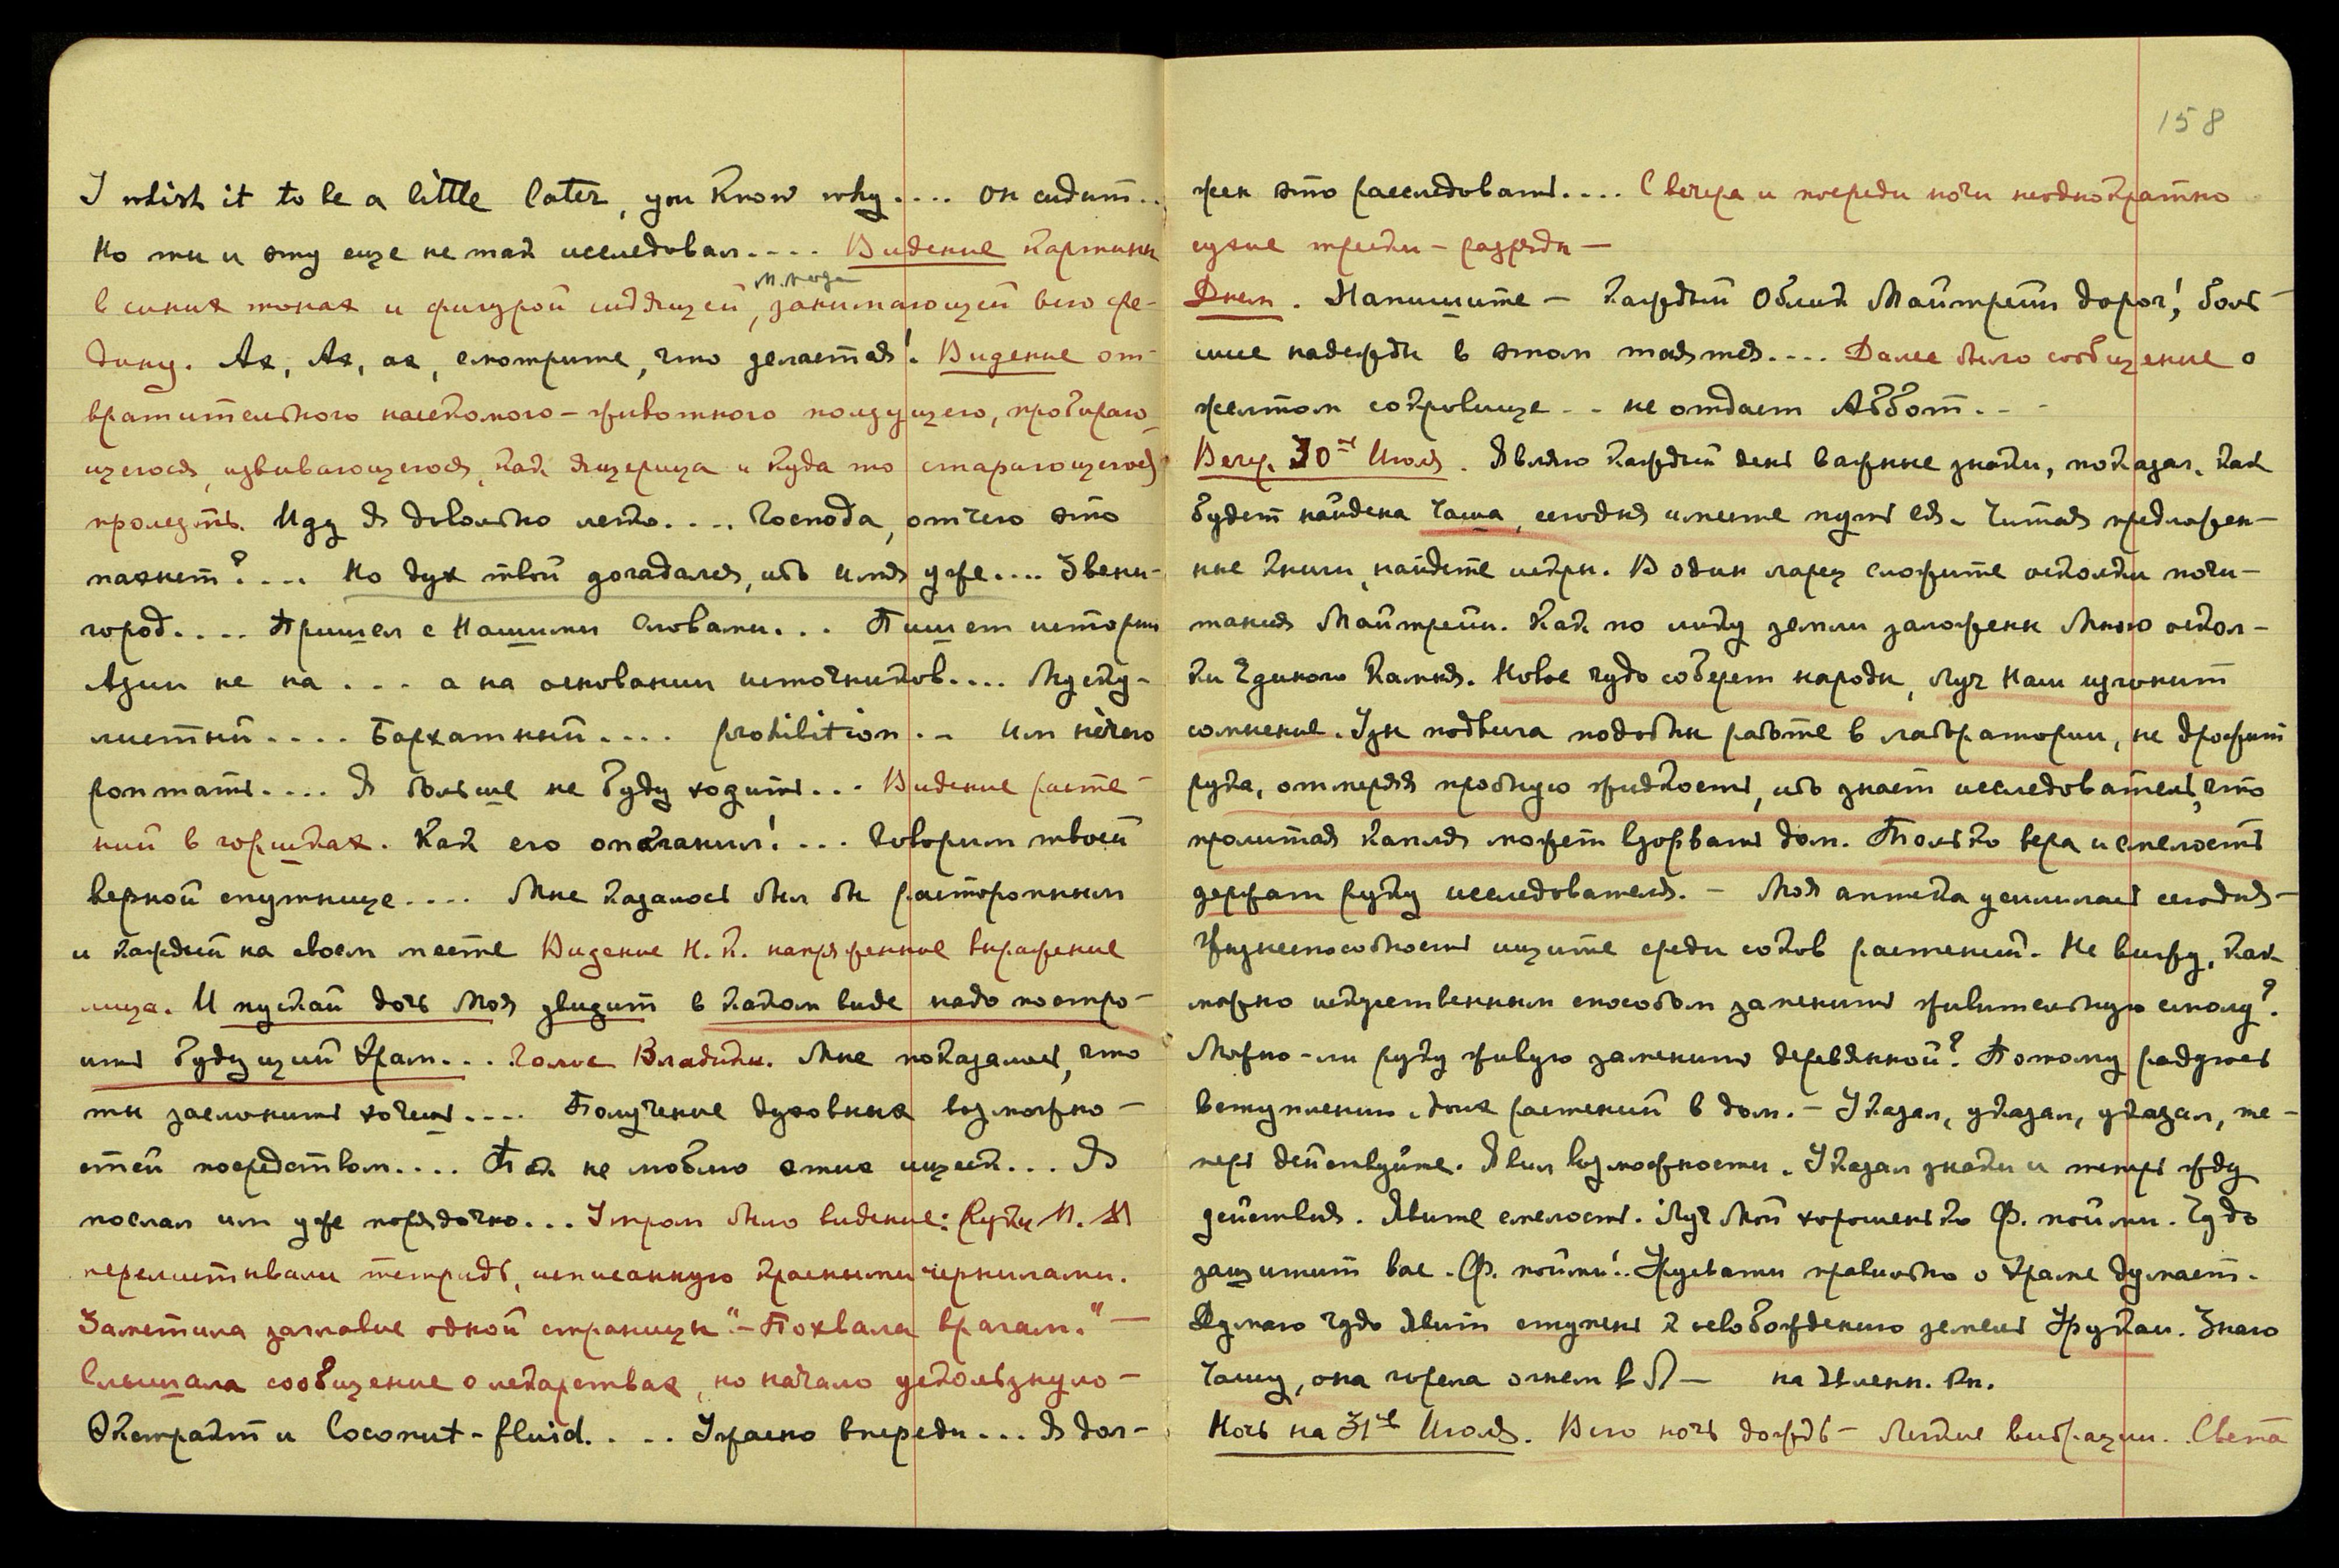 I wish it to be a little later, you know why.... он сидит..
Но ты и эту еще не так исследовал.... Видение картины
М. Людм
в синих тонах и фигурой сидящей, занимающей всю се-
дину. Ах, Ах, ах, смотрите, что делается! Видение от-
вратительного насекомого-животного ползущего, пробираю-
щегося, извивающегося, как ящерица и куда то старающегося
пролезть. Иду я довольно легко.... Господа, отчего это
пахнет?.... Но дух твой догадался, ибо имя уже.... Звени-
город.... Пришел с Нашими Словами... Пишет историю
Азии не на.... а на основании источников....
.... Бархатный.... prohibition... Им нечего
роптать.... Я больше не буду ходить... Видение расте-
ний в горшках. Как его опоганил!... Говорим твоей
верной спутнице.... Мне казалось был бы расторопным
и каждый на своем месте Видение Н.К. напряженное выражение
лица. И пускай дочь Моя увидит в каком виде надо постро-
ить будущий Храм... Голос Владыки. Мне показалось, что
ты заслонить хочешь.... Получение духовных возможно-
стей посредством.... Так не люблю этих ищеек... Я
послал им уже порядочно... Утром было видение: Руки М. М
перелистывали тетрадь, исписанную красными чернилами.
Заметила заглавие одной страницы "—Похвала врагам." —
Слышала сообщение о лекарствах, но начало ускользнуло—
Экстракт и Coconut-fluid.... Ужасно впереди... Я дол-
158
жен это расследовать.... С вечера и посреди ночи неоднократно
сухие трески — разряды —
Днем. Напишите — каждый Облик Майтрейи дорог! боль-
шие надежды в этом таятся.... Далее было сообщение о
желтом сокровище... не отдает Аббот...
Веч. 30го Июля. Являю каждый день важные знаки, показал, как
будет найдена Чаша, сегодня имеете путь ея. Читая предложен-
ные книги, найдете искры. В один ларец сложите осколки почи-
тания Майтрейи. Как по лику земли заложены Мною оскол-
ки Единого Камня. Новое чудо соберет народы, луч Наш изгонит
сомнение. Узы подвига подобны работе в лаборатории, не дрожит
рука, отмеряя пробную жидкость, ибо знает исследователь, что
пролитая капля может взорвать дом. Только вера и смелость
держат руку исследователя. — Моя аптека усилилась сегодня —
Жизнеспособность ищите среди соков растений. Не вижу, как
можно искусственным способом заменить живительную смолу?
Можно-ли руку живую заменить деревянной? Потому радуюсь
вступлению духа растений в дом. — Указал, указал, указал, те-
перь действуйте. Явил возможности. Указал знаки и теперь жду
действия. Явите смелость. Луч Мой хорошенько Ф. пойми. Чудо
защитит вас. Ф. пойми! Урусвати правильно о Храме думает.
Думаю чудо явит ступень к освобождению земель Уружан. Знаю
Чашу, она горела огнем в Л — на Явленн. Кн.
Ночь на 31ое Июля. Всю ночь дождь — Легкие вибрации. Света